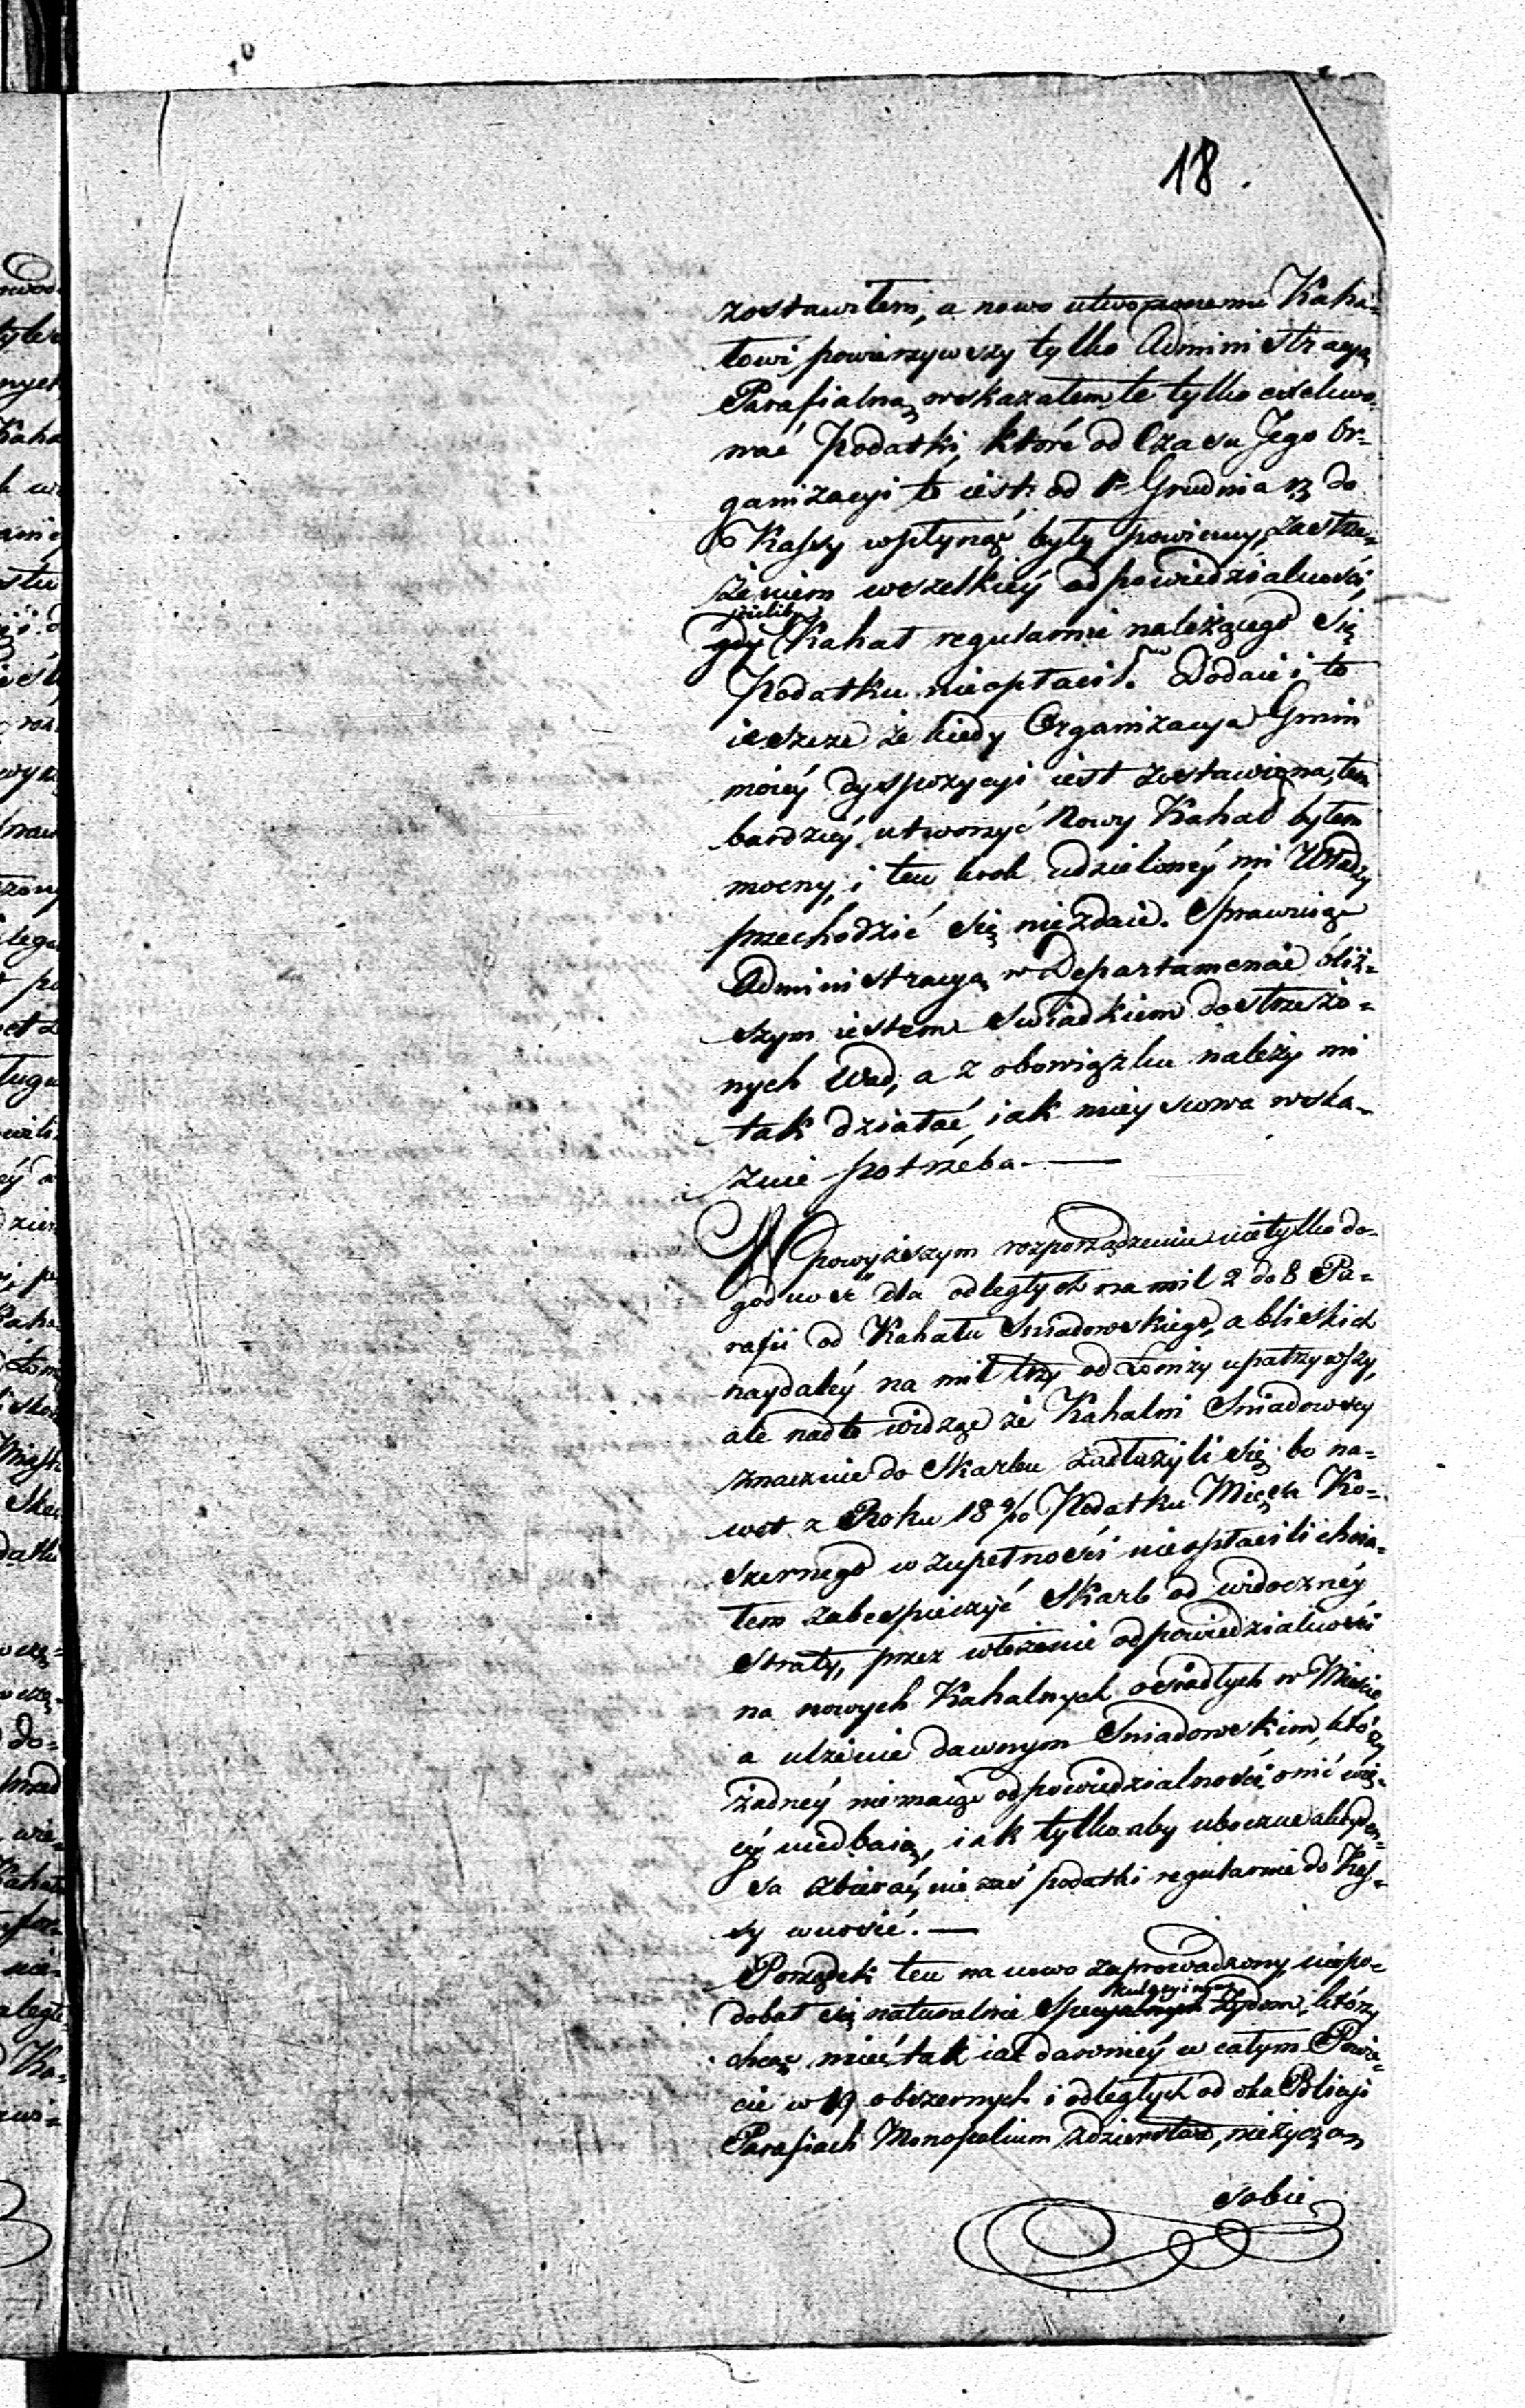 18.
zostawiłem, a nowo utworzonemu Kaha=
łowi powierzywszy tylko Administracyą
Parafialną, wskazałem te tylko exekwo-
wać Podatki, które od Czasu Jego Or=
ganizacyi to iest: od 1º Grudnia do
Kassy wpłynąć były powinny, zastrze=
żeniem wszelkiéy odpowiedzialności,
ieżeliby
gdy Kahał regularnie należącego się
Podatku nieopłacił. Dodaie i to
ieszcze że kiedy Organizacya Gmin
moiéy dyspozycyi iest zostawiona, tem
bardziéy utworzyć Nowy Kahał byłem
mocny, i ten krok udzielonéy mi Władzy
przechodzić się niezdaie. Sprawuiąc
Administracyą w Departamencie bliż=
szym iestem Swiadkiem dostrzeżo=
nych Wad, a z obowiązku należy mi
tak działać, iak mieyscowa wska-
zuie potrzeba.—
W powyższym rozporządzeniu nietylko do-
godność dla odległych na mil 2 do 8 Pa=
rafii od Kahału Sniadowskiego, a bliskich
naydaléy na mil trzy od Łomży upatrzywszy,
ale nadto widząc że Kahalni Sniadowscy
znacznie do Skarbu zadłużyli się: bo na=
wet z Roku 18 9/10 Podatku Mięsa Ko=
szernego w zupełności nieopłacili chcia=
łem zabespieczyć Skarb od widocznéy
straty, przez włożenie odpowiedzialności
na nowych Kahalnych osiadłych w Mieście,
a ulżenie dawnym Sniadowskim, którzy
żadnéy niemaiąc odpowiedzialności, o nic wię=
céy niedbaią, iak tylko aby uboczne akcyden=
sa zbierać, nie zaś podatki regularnie do Kas=
sy wnosić.—
Porządek ten na nowo zaprowadzony, niepo=
kulacyinym
dobał się naturalnie Specyalnym Żydom, którzy
chcąc mieć tak iak dawniéy w całym Powie=
cie w 19 obszernych i odległych od oka Policyi
Parafiach Monopolium zdzierstwa, nieżyczą
sobie